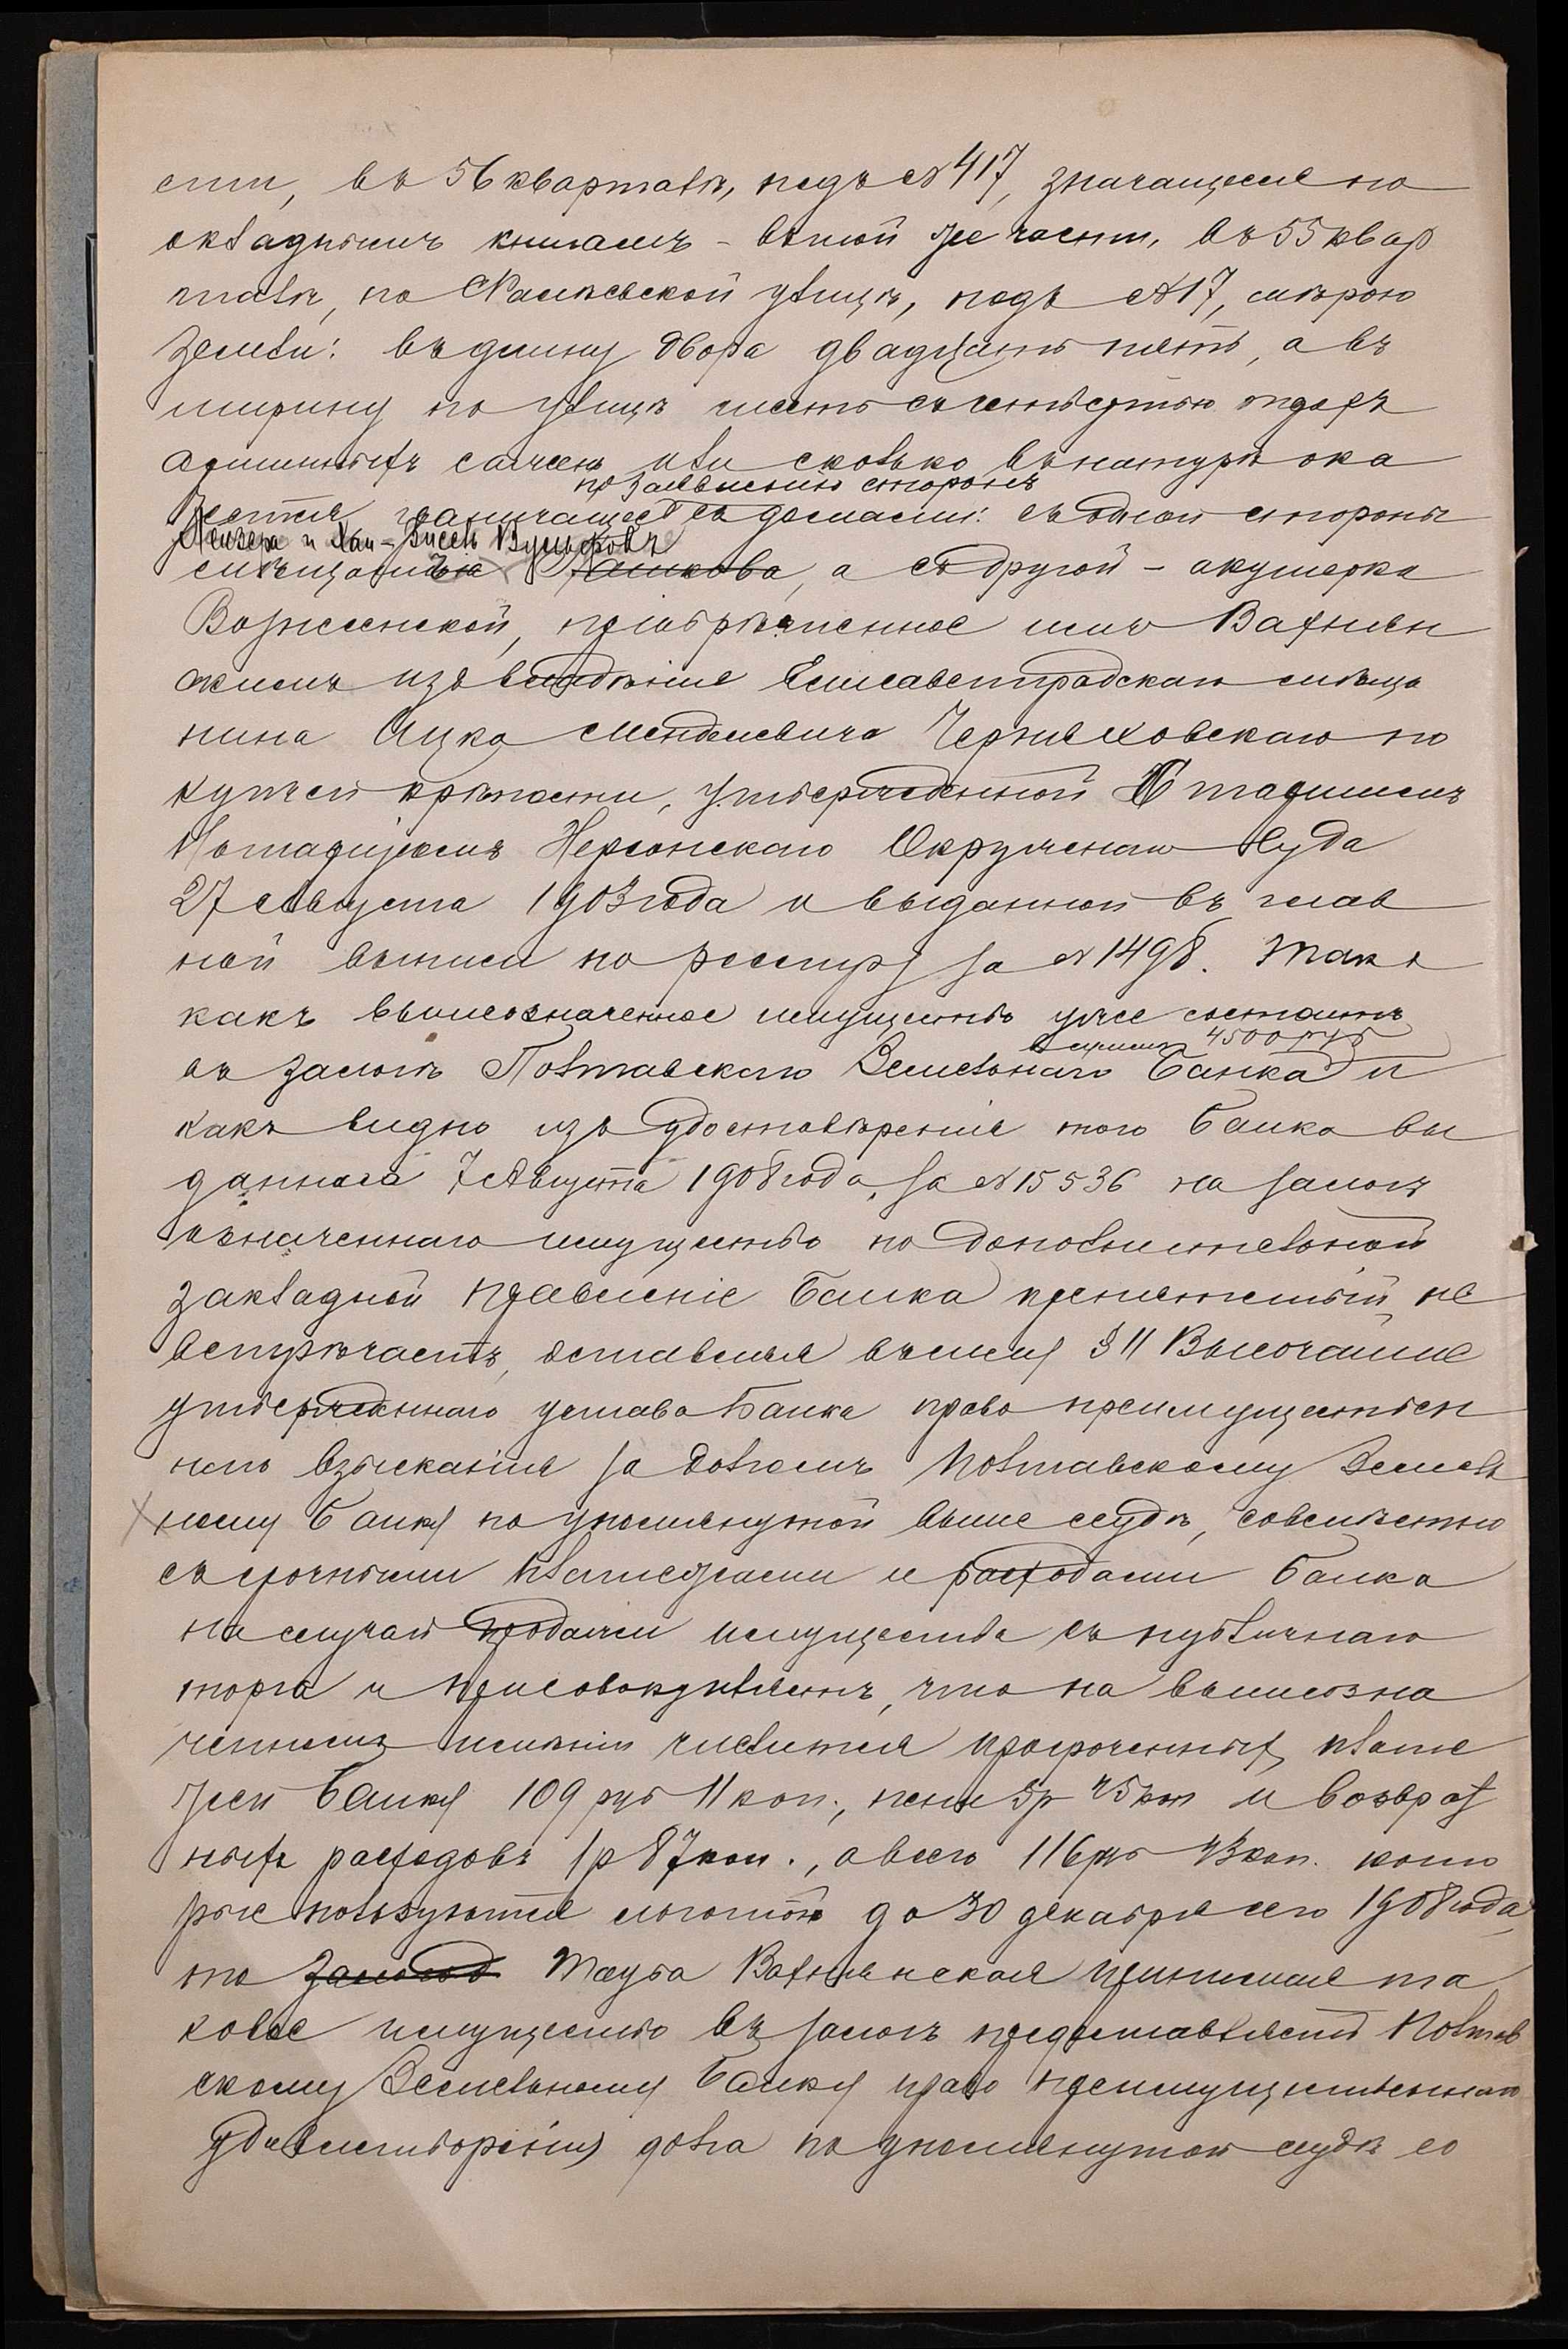 сти, въ 56 кварталѣ, подъ № 417, значащееся по
окладнымъ книгамъ - въ той же части, въ 55 квар
талѣ, по улицѣ, подъ № 17, мѣрою
земли: въ длину двора двадцать пять, а въ
ширину по улицѣ шесть съ четвертью
саженъ или сколько въ натурѣ ока
по заявленію сторонъ
жется граничащее съ домами: съ одной стороны
Лейзера и Хаи-
Рашкова, а съ другой - акушерки
Вознесенской, пріобрѣтенное имъ Вахнян
скимъ изъ владѣнія Елисаветградскаго мѣща
нина Ицка Менделевича Черняховскаго по
купчей крѣпости, утвержденной Старшимъ
Нотаріусомъ Херсонскаго Окружнаго Суда
27 Августа 1903 года и выданной въ глав
ной выписи по реестру за № 1498. Такъ
какъ вышеозначенное имущество уже состоитъ
въ суммѣ 4500 руб
въ залогѣ Полтавскаго Земельнаго Банка и
какъ видно изъ удостовѣренія того Банка вы
даннаго 7 Августа 1908 года, за № 15536 на залогъ
означеннаго имущества по дополнительной
закладной правленіе Банка препятствій не
встрѣчаетъ, оставляя въ силу § 11 Высочайше
утвержденнаго устава Банка право преимуществен
наго взысканія за долгомъ Полтавскому Земель
ному Банку по упомянутой выше ссудѣ, совмѣстно
съ срочными платежами и расходами Банка
на случай продажи имущества съ публичнаго
торга и присовокупляетъ, что на вышеозна
ченномъ имѣніи числится просроченныхъ плате
жей Банку 109 руб 11 коп., пени 5 р 45 коп и возврат
ныхъ расходовъ 1 р 87 коп., а всего 116 руб 43 коп. кото
рые пользуются льготою до 30 декабря сего 1908 года,
то Тауба Вахнянская принимая та
ковое имущество въ залогъ предоставляетъ Полтав
скому Земельному Банку право преимущественнаго
удовлетворенія долга по упомянутой ссудѣ со